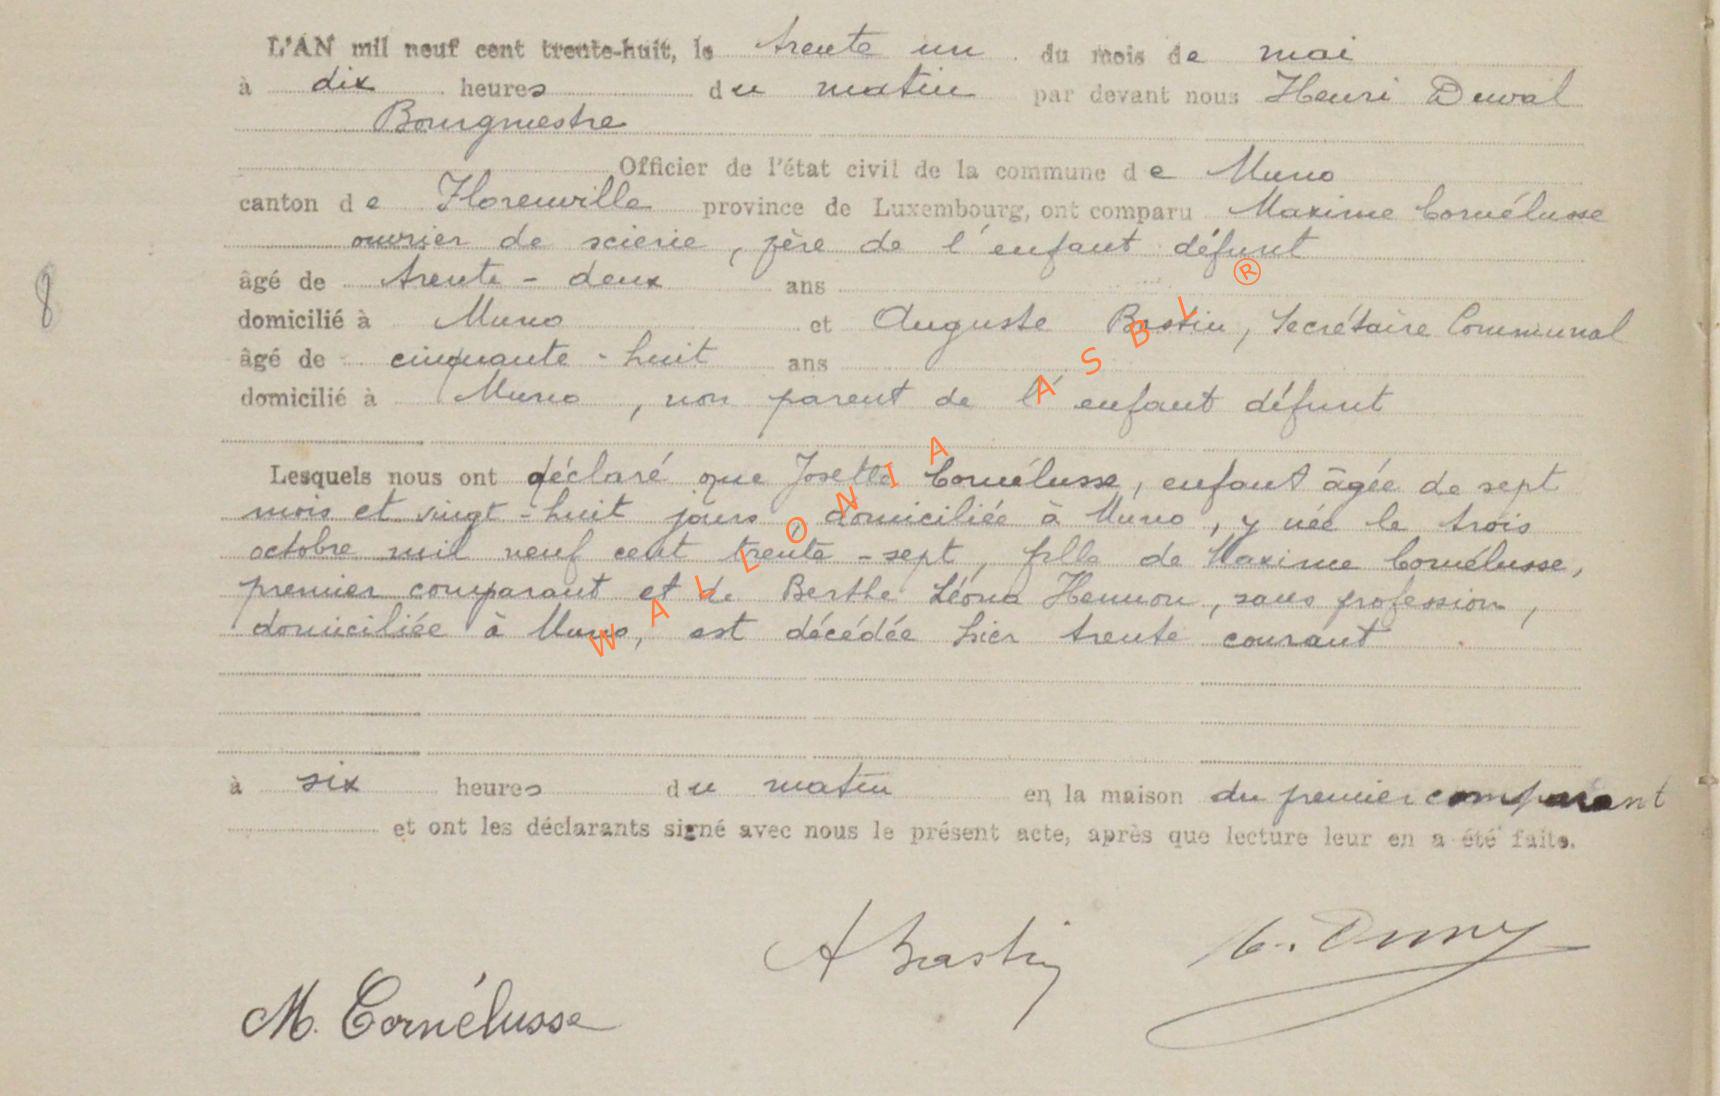 L'AN mil neuf cent trente-huit, le trente un du mois de mai
à dix heures du matin par devant nous Henri Duval
Bourgmestre
Officier de l'état civil de la commune de Muno
canton de Florenville province de Luxembourg, ont comparu Maxime Cornélusse
ouvrier de scierie, père de l'enfant défunt
âgé de trente-deux ans
domicilié à Muno et Auguste Bastin, Secrétaire Communal
8
âgé de cinquante-huit ans
domicilié à Muno, non parent de l'enfant défunt
Lesquels nous ont déclaré que Josette Cornélusse, enfant âgée de sept
mois et vingt-huit jours, domiciliée à Muno, y née le trois
octobre mil neuf cent trente-sept, fille de Maxime Cornélusse,
premier comparant et de Berthe Léona Hennon, sans profession,
domiciliée à Muno, est décédée hier trente courant
à six heures du matin en la maison du premier comparant
et ont les déclarants signé avec nous le présent acte, après que lecture leur en a été faite.
A Bastin
M. Cornélusse
WALLONIA ASBL ®